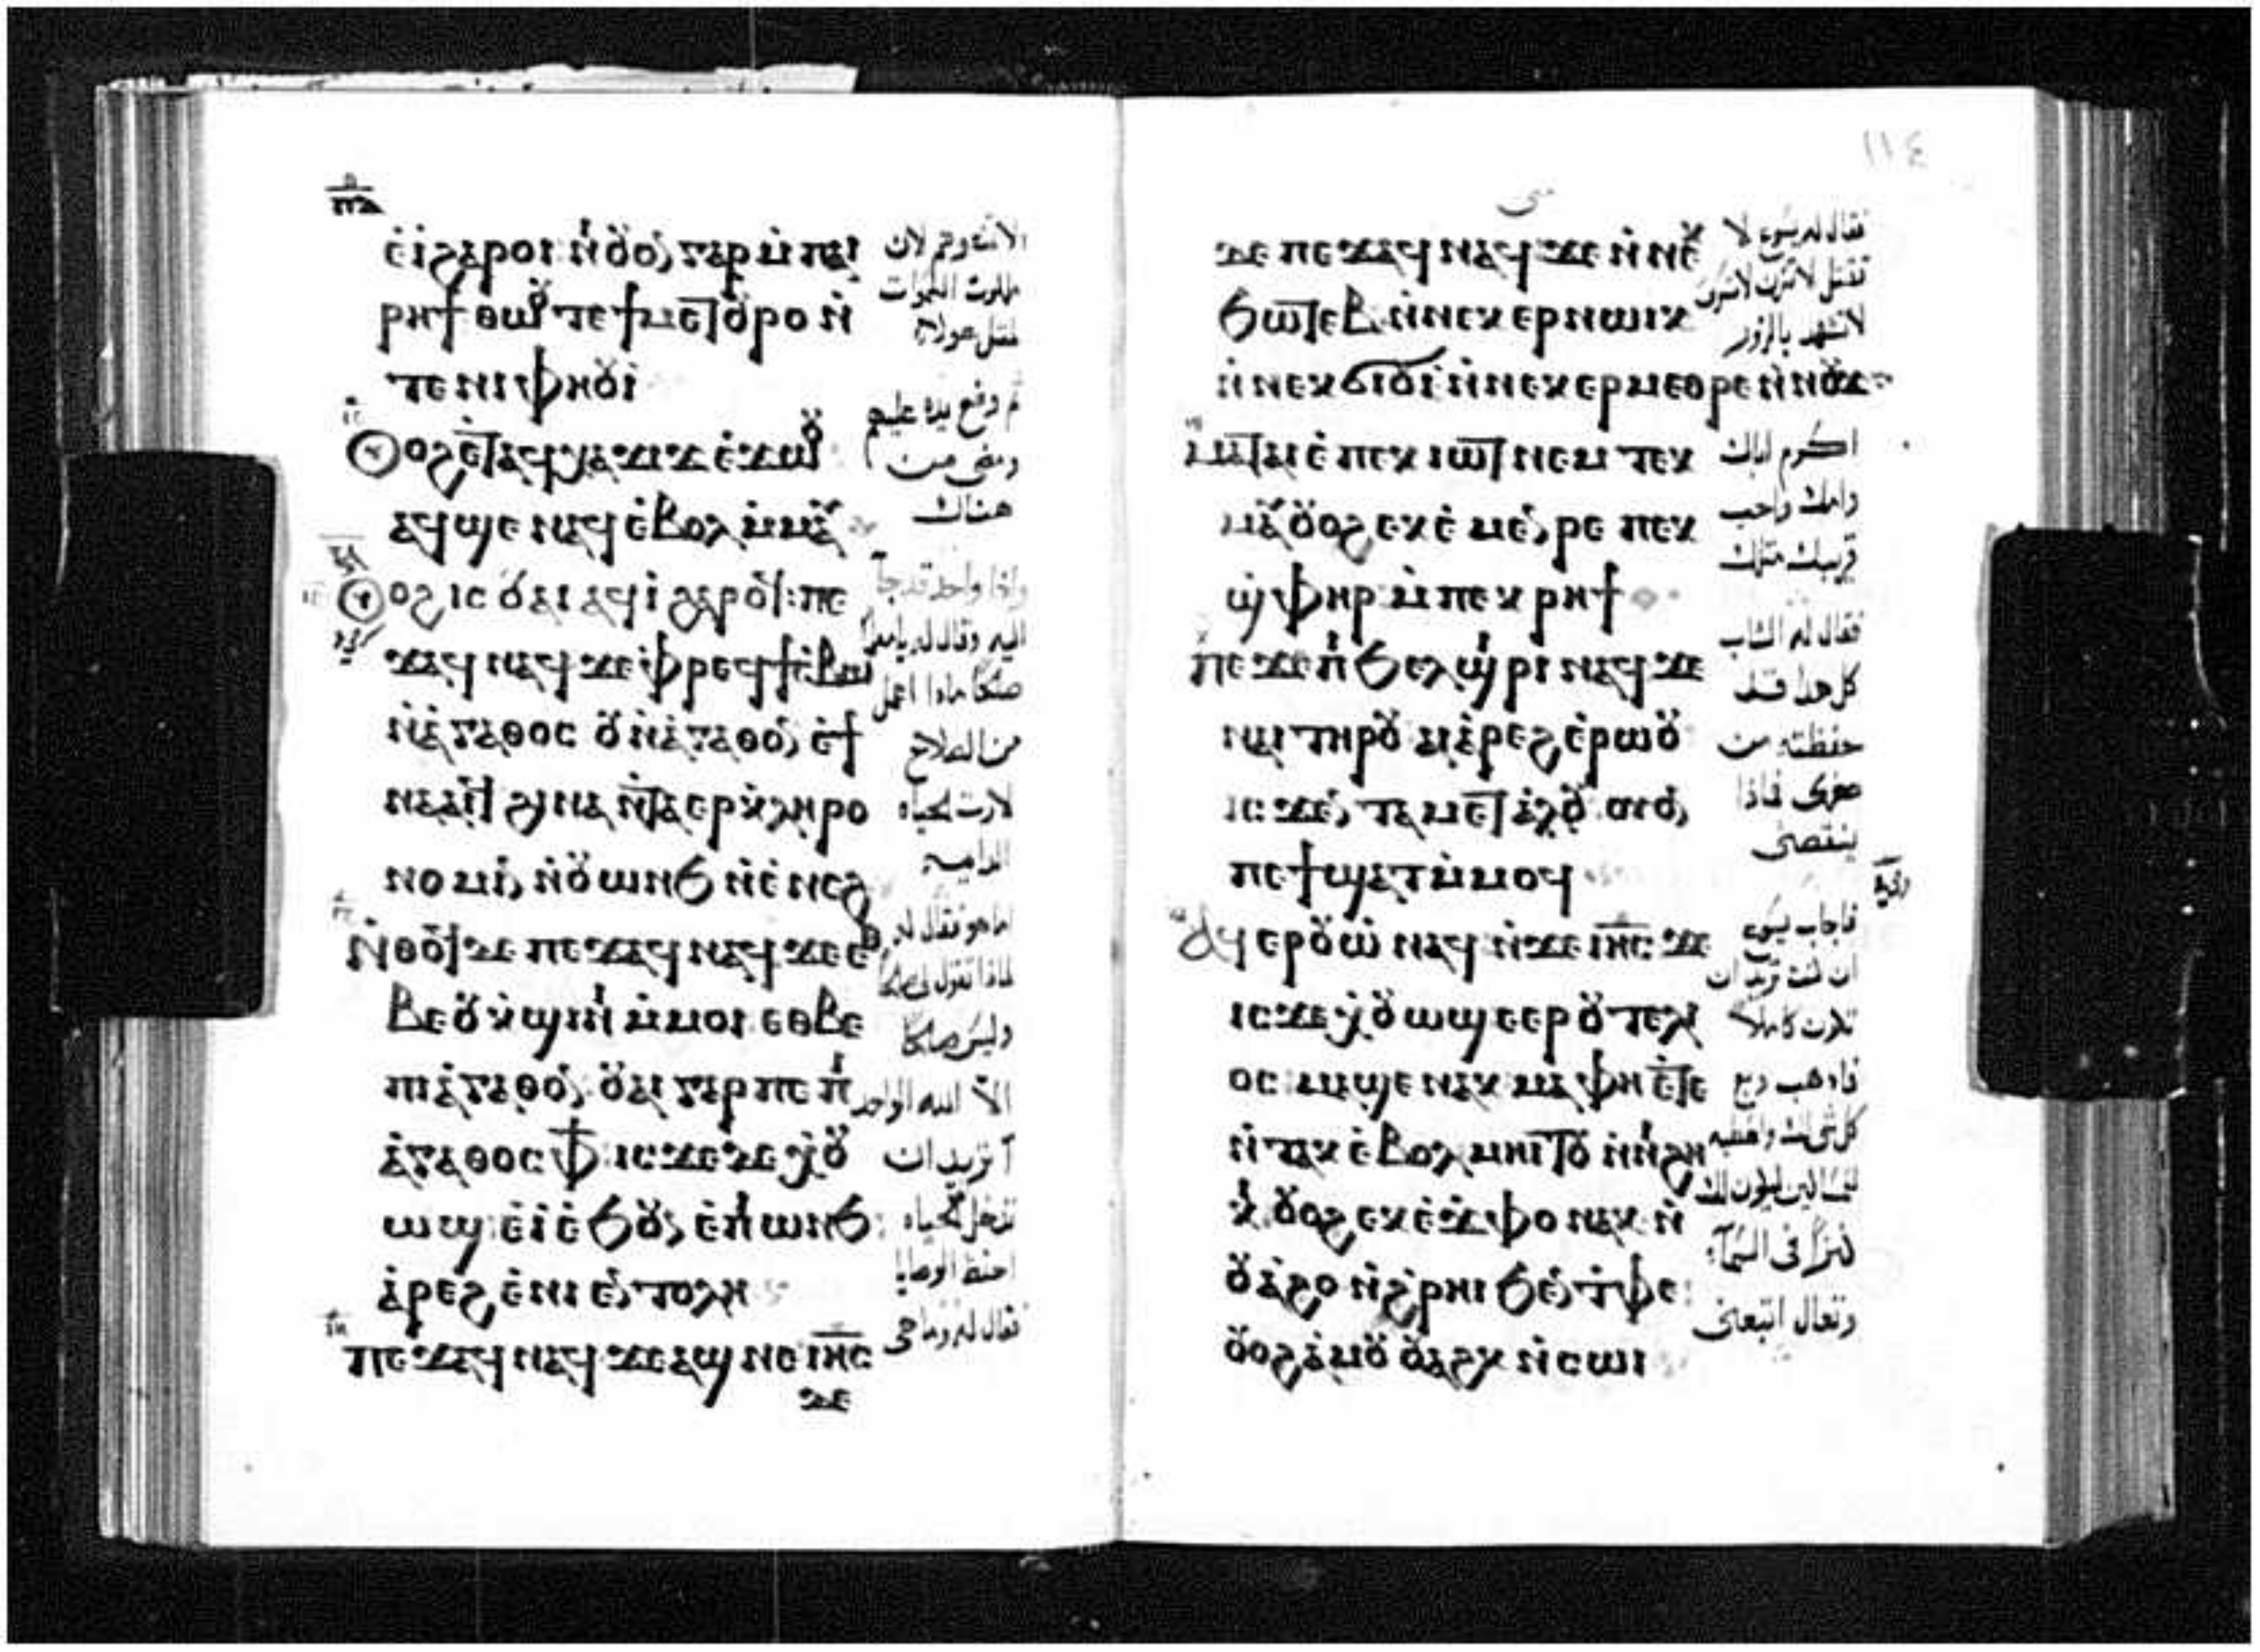 ⲡⲇ
ⲉ̀ⲓ̀ϩⲁⲣⲟⲓ ⲛⲁⲟⲩⲟⲛ ⲅⲁⲣ ⲙ̀ⲡⲁⲓ
ⲣⲏϯ ⲑⲱⲟⲩ ⲧⲉ ϯⲙⲉⲧⲟⲩⲣⲟ ⲛ̀
ⲧⲉ ⲛⲓⲫⲏⲟⲩⲓ̀
ⲟⲩⲟϩ ⲉ̀ⲧⲁϥⲭⲁϫⲓϫ ⲉ̀ϫⲱⲟⲩ
ⲁϥϣⲉ ⲛⲁϥ ⲉ̀ⲃⲟⲗ ⲙ̀ⲙⲁⲩ
ⲟⲩⲟϩ ⲓⲥ ⲟⲩⲁⲓ ⲁϥⲓ̀ ϩⲁⲣⲟϥ ⲡⲉ
ϫⲁϥ ⲛⲁϥ ϫⲉ ⲫⲣⲉϥϯⲥ̀ⲃⲱ
ⲛ̀ⲁ̀ⲅⲁⲑⲟⲥ ⲟⲩ ⲛ̀ⲁ̀ⲅⲁⲑⲟⲛ ⲉ̀ϯ
ⲛⲁⲁⲓϥ ϩⲓⲛⲁ ⲛ̀ⲧⲁⲉⲣⲕ̀ⲗⲏⲣⲟ
ⲛⲟⲙⲓⲛ ⲛ̀ⲟⲩⲱⲛϧ ⲛ̀ⲉ̀ⲛⲉϩ
ⲛ̀ⲑⲟϥ ⲇⲉ ⲡⲉϫⲁϥ ⲛⲁϥ ϫⲉ ⲉⲑ
ⲃⲉⲟⲩ ⲕ̀ϣⲓⲛⲓ ⲙ̀ⲙⲟⲓ ⲉⲑⲃⲉ
ⲡⲓⲁ̀ⲅⲁⲑⲟⲛ ⲟⲩⲁⲓ ⲅⲁⲣ ⲡⲉ ⲡⲓ
ⲁ̀ⲅⲁⲑⲟⲥ ⲫϯ ⲓⲥϫⲉ ⲇⲉ ⲭ̀ⲟⲩ
ⲱϣ ⲉ̀ⲓ̀ ⲉ̀ϧⲟⲩⲛ ⲉ̀ⲡⲓⲱⲛϧ
ⲁ̀ⲣⲉϩ ⲉ̀ⲛⲓⲉⲛⲧⲟⲗⲏ
ⲡⲉϫⲁϥ ⲛⲁϥ ϫⲉ ⲁϣ ⲛⲉ ⲓⲏⲥ
ⲇⲉ
الاتيه وهم لان
ملكوت السموات
لمثل هولاء
ثم وضع يده عليهم
ومضى من
هناك
واذا واحد قد جآ
اليه وقال له يا معلم
صالحا ماذا اعمل
من الصلاح
لارث الحياه
الدايمه
اما هو فقال له
لماذا تقول لى صالحا
وليس صالحا
الا الله الواحد
أتريد ان
تدخل الحياه
احفظ الوصايا
فقال له وما هى
١١٤
متى
ⲇⲉ ⲡⲉϫⲁϥ ⲛⲁϥ ϫⲉ ⲛ̀ⲛⲉⲕ
ϧⲱⲧⲉⲃ ⲛ̀ⲛⲉⲕ ⲉⲣⲛⲱⲓⲕ
ⲛ̀ⲛⲉⲕϭⲓⲟⲩⲓ̀ ⲛ̀ⲛⲉⲕⲉⲣⲙⲉⲑⲣⲉ ⲛ̀ⲛⲟⲩϫ
ⲙⲁⲧⲁⲓⲉ̀ ⲡⲉⲕⲓⲱⲧ ⲛⲉⲙ ⲧⲉⲕ
ⲙⲁⲩ ⲟⲩⲟϩ ⲉⲕⲉ̀ⲙⲉⲛⲣⲉ ⲡⲉⲕ
ϣ̀ⲫⲏⲣ ⲙ̀ⲡⲉⲕⲣⲏϯ
ⲡⲉϫⲉ ⲡⲓϧⲉⲗϣⲓⲣⲓ ⲛⲁϥ ϫⲉ
ⲛⲁⲓ ⲧⲏⲣⲟⲩ ⲁⲓⲁ̀ⲣⲉϩ ⲉ̀ⲣⲱⲟⲩ
ⲓⲥϫⲉⲛ ⲧⲁⲙⲉⲧⲁ̀ⲗⲟⲩ ⲟⲩⲟⲛ
ⲡⲉϯϣⲁⲧ ⲙ̀ⲙⲟϥ
ⲁϥⲉⲣⲟⲩⲱ̀ ⲛⲁϥ ⲛ̀ϫⲉ ⲓⲏⲥ ϫⲉ
ⲓⲥϫⲉ ⲭ̀ⲟⲩⲱϣ ⲉⲉⲣⲟⲩⲧⲉⲗⲓ
ⲟⲥ ⲙⲁϣⲉ ⲛⲁⲕ ⲙⲁ ⲫⲏ ⲉ̀ⲧⲉ
ⲛ̀ⲧⲁⲕ ⲉ̀ⲃⲟⲗ ⲙⲏⲓⲧⲟⲩ ⲛ̀ⲛⲓϩⲏ
ⲕⲓ ⲟⲩⲟϩ ⲉⲕⲉ̀ϫⲫⲟ ⲛⲁⲕ ⲛ̀
ⲟⲩⲁ̀ϩⲟ ⲛ̀ϩ̀ⲣⲏⲓ ϧⲉⲛ ⲧ̀ⲫⲉ
ⲟⲩⲟϩ ⲁ̀ⲙⲟⲩ ⲟⲩⲁϩⲕ ⲛ̀ⲥⲱⲓ
فقال له يسوع لا
تقتل لا تزن لا تسرق
لا تشهد بالزور
اكرم اباك
وامك واحب
قريبك مثلك
فقال له الشاب
كل هذا قد
حفظته من
صغرى فماذا
ينقصنى
فاجاب يسوع
ان كنت تريد ان
تكون كاملا
فاذهب وبع
كل شى لك واعطيه
للمساكين ليكون لك
كنزا فى السمآء
وتعال اتبعنى